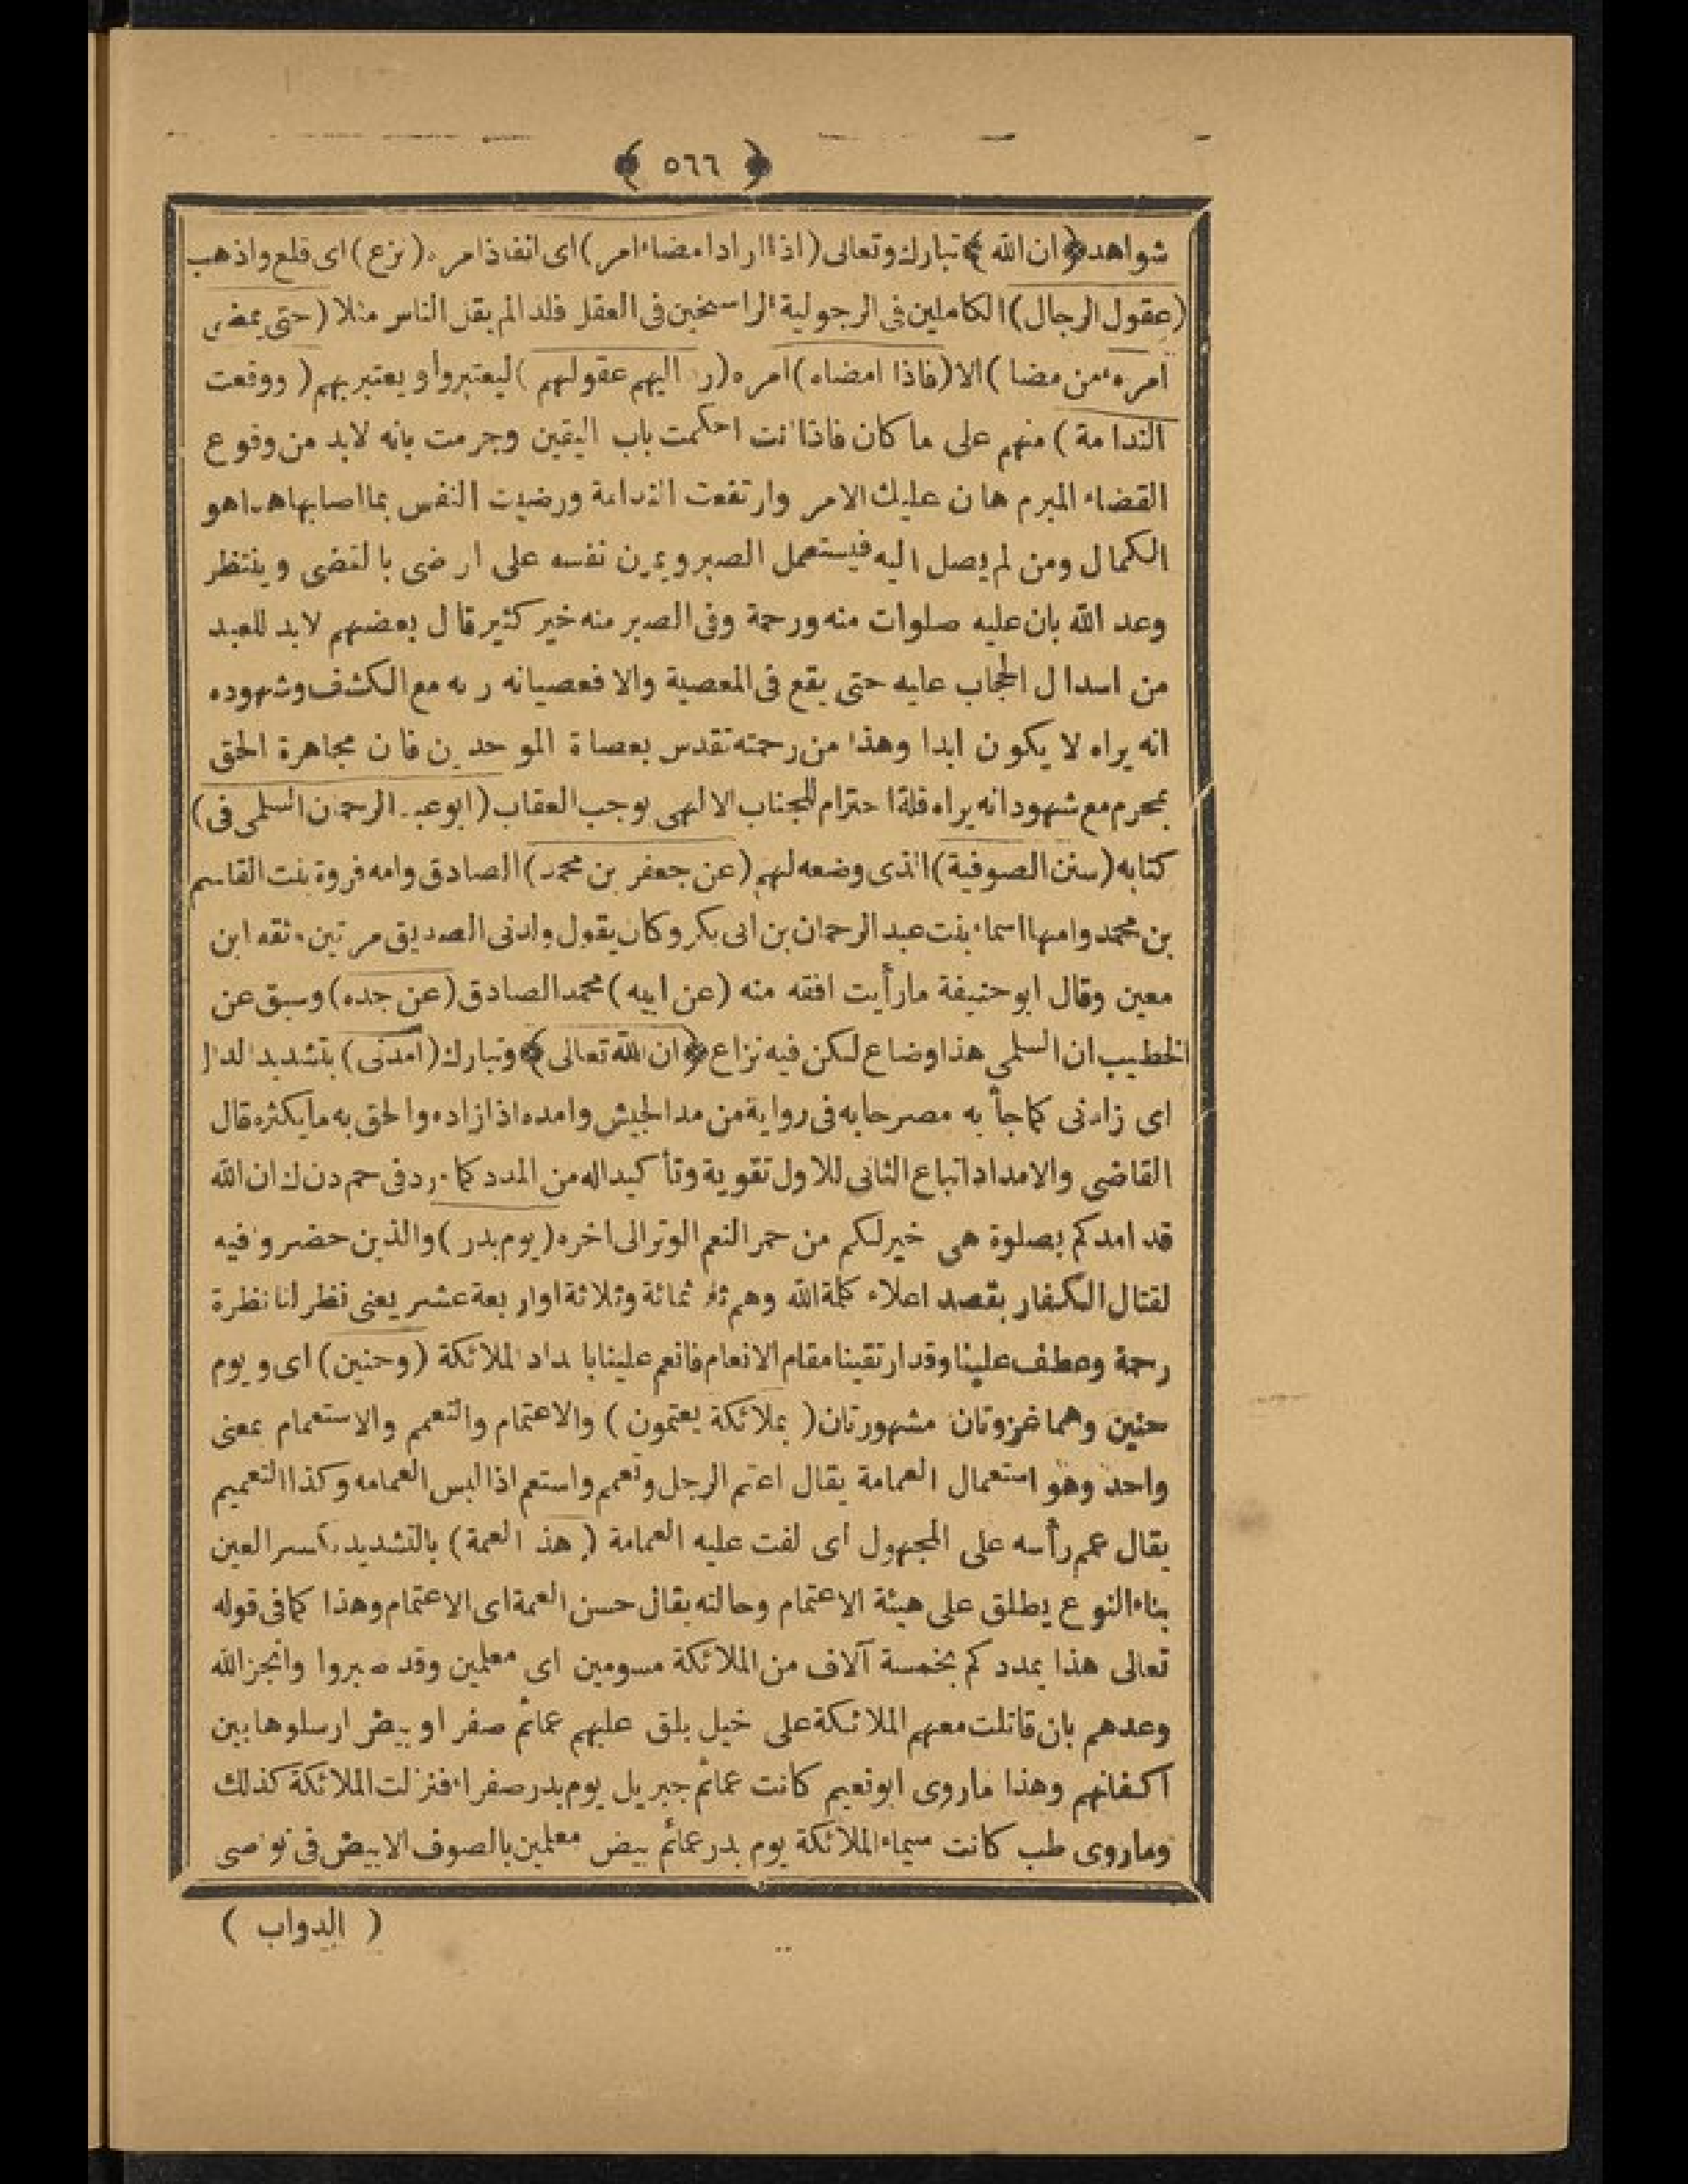 ﴿ ٥٦٦ ﴾
شواهد ﴿ ان الله ﴾ تبارك وتعالى (اذا اراد امضاء امر) اى انفاذ امره (نزع) اى قلع واذهب
(عقول الرجال) الكاملين فى الرجولية الراسخين فى العقل فلذا لم يقل الناس مثلا (حتى يمضى
امره من مضا) الا (فاذا امضاه) امره (رد اليهم عقولهم) ليعتبروا ويعتبر بهم (ووقعت
الندامة) منهم على ما كان فاذا انت احكمت باب اليقين وجزمت بانه لابد من وقوع
القضاء المبرم هان عليك الامر وارتفعت الندامة ورضيت النفس بما اصابها هذا هو
الكمال ومن لم يصل اليه فيستعمل الصبر ويمرن نفسه على الرضى بالقضى وينتظر
وعد الله بان عليه صلوات منه ورحمة وفى الصبر منه خير كثير قال بعضهم لابد للعبد
من اسدال الحجاب عليه حتى يقع فى المعصية والا فعصيانه ربه مع الكشف وشهوده
انه يراه لا يكون ابدا وهذا من رحمته تقدس بعصاة الموحدين فان مجاهرة الحق
بمحرم مع شهود انه يراه قلة احترام للجناب الالهى يوجب العقاب (ابو عبد الرحمان السلمى فى)
كتابه (سنن الصوفية) الذى وضعه لهم (عن جعفر بن محمد) الصادق وامه فروة بنت القاسم
بن محمد وامها اسماء بنت عبد الرحمان بن ابى بكر وكان يقول ولدنى الصديق مرتين وثقه ابن
معين وقال ابو حنيفة ما رأيت افقه منه (عن ابيه) محمد الصادق (عن جده) وسبق عن
الخطيب ان السلمى هذا وضاع لكن فيه نزاع ﴿ ان الله تعالى ﴾ وتبارك (امدنى) بتشديد الدال
اى زادنى كما جأ به مصرحا به فى رواية من مد الجيش وامده اذا زاده والحق به ما يكثره قال
القاضى والامداد اتباع الثانى للاول تقوية وتأكيدا له من المدد كما ورد فى حم دن ك ان الله
قد امدكم بصلوة هى خير لكم من حمر النعم الوتر الى اخره (يوم بدر) والذين حضروا فيه
لقتال الكفار بقصد اعلاء كلمة الله وهم ثلثمائة وثلاثة او اربعة عشر يعنى نظر لنا نظرة
رحمة وعطف علينا وقد ارتقينا مقام الانعام فانعم علينا بامداد الملائكة (وحنين) اى ويوم
حنين وهما غزوتان مشهورتان (بملائكة يعتمون) والاعتمام والتعمم والاستعمام بمعنى
واحد وهو استعمال العمامة يقال اعتم الرجل وتعمم واستعم اذا لبس العمامه وكذا التعميم
يقال عمم رأسه على المجهول اى لفت عليه العمامة (هذ العمة) بالتشديد بكسر العين
بناء النوع يطلق على هيئة الاعتمام وحالته يقال حسن العمة اى الاعتمام وهذا كما فى قوله
تعالى هذا يمددكم بخمسة آلاف من الملائكة مسومين اى معلمين وقد صبروا وانجز الله
وعدهم بان قاتلت معهم الملائكة على خيل بلق عليهم عمائم صفر او بيض ارسلوها بين
اكتفانهم وهذا ما روى ابو نعيم كانت عمائم جبريل يوم بدر صفراء فنزلت الملائكة كذلك
وما روى طب كانت سيماء الملائكة يوم بدر عمائم بيض معلمين بالصوف الابيض فى نواصى
( الدواب )